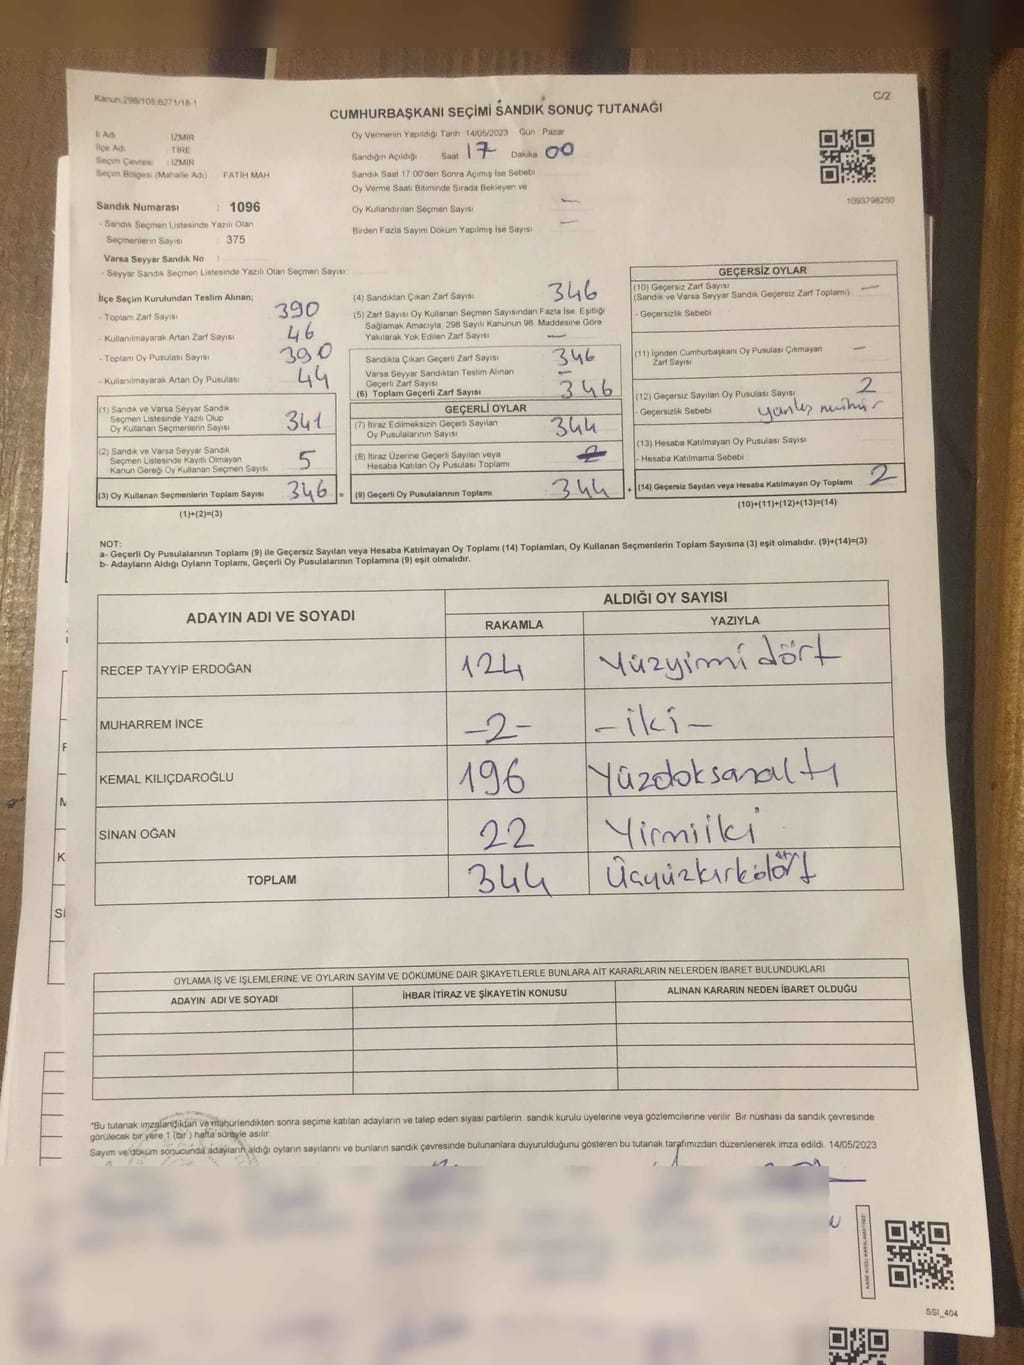 Kanun:298/105,6271/18-1
C/2
CUMHURBAŞKANI SEÇİMİ SANDIK SONUÇ TUTANAĞI
İl Adı İZMİR
İlçe Adı TİRE
Seçim Çevresi : İZMİR
Seçim Bölgesi (Mahalle Adı) FATİH MAH
Sandık Numarası : 1096
- Sandık Seçmen Listesinde Yazılı Olan
Seçmenlerin Sayısı : 375
Varsa Seyyar Sandık No :
- Seyyar Sandık Seçmen Listesinde Yazılı Olan Seçmen Sayısı:
Oy Vermenin Yapıldığı Tarih 14/05/2023 Gün Pazar
Sandığın Açıldığı Saat 17 Dakika 00
Sandık Saat 17 00'den Sonra Açımış İse Sebebi
Oy Verme Saati Bitiminde Sırada Bekleyen ve
Oy Kullandırılan Seçmen Sayısı —
Birden Fazla Sayım Döküm Yapılmış İse Sayısı —
1093798250
İlçe Seçim Kurulundan Teslim Alınan;
- Toplam Zarf Sayısı 390
- Kullanılmayarak Artan Zarf Sayısı 46
- Toplam Oy Pusulası Sayısı 390
- Kullanılmayarak Artan Oy Pusulası 44
(1) Sandık ve Varsa Seyyar Sandık
Seçmen Listesinde Yazılı Olup
Oy Kullanan Seçmenlerin Sayısı 341
(2) Sandık ve Varsa Seyyar Sandık
Seçmen Listesinde Kayıtlı Olmayan
Kanun Gereği Oy Kullanan Seçmen Sayısı 5
(3) Oy Kullanan Seçmenlerin Toplam Sayısı 346 =
(1)+(2)=(3)
(4) Sandıktan Çıkan Zarf Sayısı 346
(5) Zarf Sayısı Oy Kullanan Seçmen Sayısından Fazla İse, Eşitliği
Sağlamak Amacıyla; 298 Sayılı Kanunun 98. Maddesine Göre
Yakılarak Yok Edilen Zarf Sayısı —
Sandıkta Çıkan Geçerli Zarf Sayısı 346
Varsa Seyyar Sandıktan Teslim Alınan
Geçerli Zarf Sayısı —
(6) Toplam Geçerli Zarf Sayısı 346
GEÇERLİ OYLAR
(7) İtiraz Edilmeksizin Geçerli Sayılan
Oy Pusulalarının Sayısı 344
(8) İtiraz Üzerine Geçerli Sayılan veya
Hesaba Katılan Oy Pusulası Toplamı
(9) Geçerli Oy Pusulalarının Toplamı 344 +
GEÇERSİZ OYLAR
(10) Geçersiz Zarf Sayısı
(Sandık ve Varsa Seyyar Sandık Geçersiz Zarf Toplamı) —
- Geçersizlik Sebebi
(11) İçinden Cumhurbaşkanı Oy Pusulası Çıkmayan
Zarf Sayısı —
(12) Geçersiz Sayılan Oy Pusulası Sayısı 2
- Geçersizlik Sebebi yanlış mühür
(13) Hesaba Katılmayan Oy Pusulası Sayısı
- Hesaba Katılmama Sebebi
(14) Geçersiz Sayılan veya Hesaba Katılmayan Oy Toplamı 2
(10)+(11)+(12)+(13)=(14)
NOT:
a- Geçerli Oy Pusulalarının Toplamı (9) ile Geçersiz Sayılan veya Hesaba Katılmayan Oy Toplamı (14) Toplamları, Oy Kullanan Seçmenlerin Toplam Sayısına (3) eşit olmalıdır. (9)+(14)=(3)
b- Adayların Aldığı Oyların Toplamı, Geçerli Oy Pusulalarının Toplamına (9) eşit olmalıdır.
ADAYIN ADI VE SOYADI
ALDIĞI OY SAYISI
RAKAMLA YAZIYLA
RECEP TAYYİP ERDOĞAN 124 Yüzyimi dört
MUHARREM İNCE -2- -iki-
KEMAL KILIÇDAROĞLU 196 Yüzdoksanaltı
SİNAN OĞAN 22 Yirmiiki
TOPLAM 344 Üçyüzkırkdört
OYLAMA İŞ VE İŞLEMLERİNE VE OYLARIN SAYIM VE DÖKÜMÜNE DAİR ŞİKAYETLERLE BUNLARA AİT KARARLARIN NELERDEN İBARET BULUNDUKLARI
ADAYIN ADI VE SOYADI İHBAR İTİRAZ VE ŞİKAYETİN KONUSU ALINAN KARARIN NEDEN İBARET OLDUĞU
*Bu tutanak imzalandıktan ve mühürlendikten sonra seçime katılan adayların ve talep eden siyasi partilerin sandık kurulu üyelerine veya gözlemcilerine verilir. Bir nüshası da sandık çevresinde
görülecek bir yere 1 (bir) hafta süreyle asılır.
Sayım ve döküm sonucunda adayların aldığı oyların sayılarını ve bunların sandık çevresinde bulunanlara duyurulduğunu gösteren bu tutanak tarafımızdan düzenlenerek imza edildi. 14/05/2023
KARE KODU KARALAMAYINIZ!
SSI_404